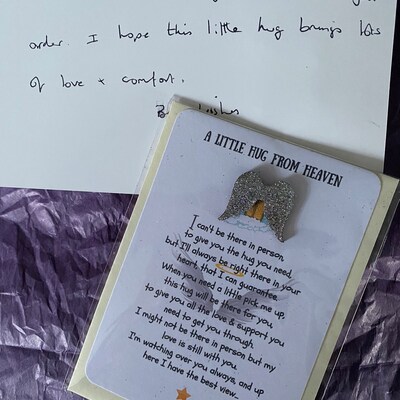 order. I hope this little hug brings lots
of love + comfort.
A LITTLE HUG FROM HEAVEN
I can't be there in person,
to give you the hug you need,
but I'll always be right there in your
heart, that I can guarantee.
When you need a little pick me up,
this hug will be there for you,
to give you all the love & support you
need to get you through.
I might not be there in person but my
love is still with you.
I'm watching over you always, and up
here I have the best view...